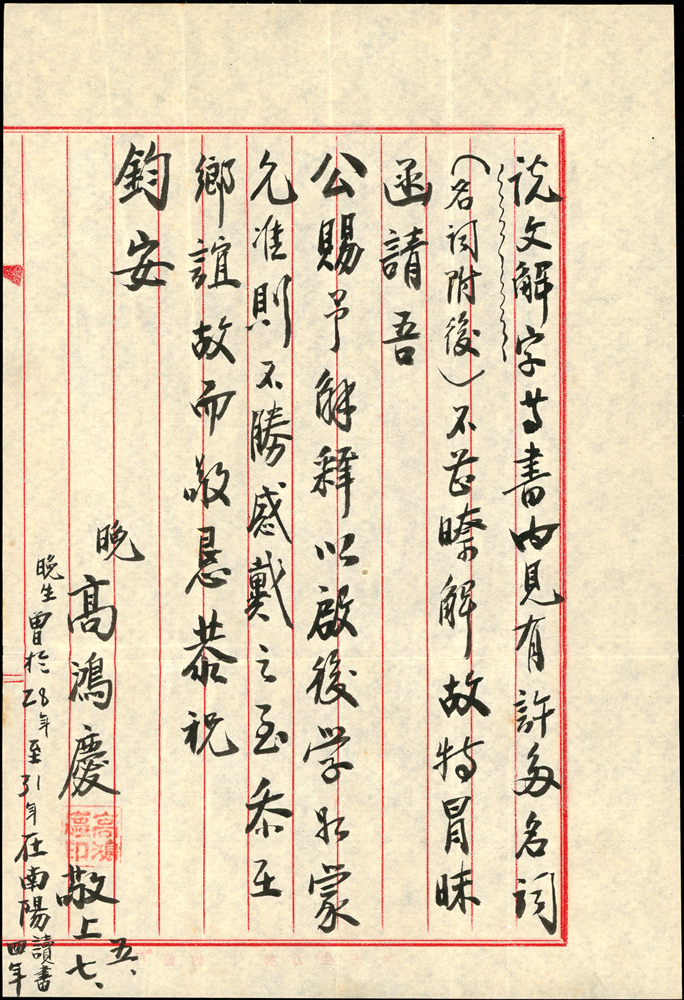 说文解字等書内見有許多名词
（名词附後）不甚暸解故特冒昧
函請吾
公賜予解释以啟後学如蒙
允准則不勝感戴之至忝在
鄉誼故而敬恳恭祝
鈞安
晚
高鴻慶敬上七、五、
高鴻慶印
晚生曾於28年至31年在南陽讀書四年